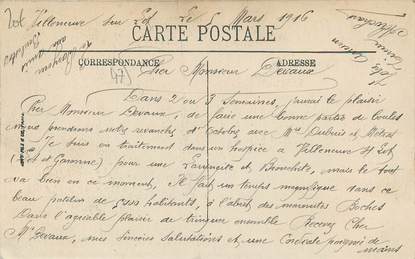 Villeneuve sur Lot le 5 Mars 1916
CARTE POSTALE
CORRESPONDANCE
ADRESSE
(47)
Cher Monsieur Devaux
Dans 2 ou 3 Semaines, j'aurai le plaisir
Cher Monsieur Devaux, de faire une bonne partie de boules
nous prendrons notre revanche d'Octobre avec Mrs Dubuis et
Je suis en traitement dans un hospice à Villeneuve s/ Lot
(Lot et Garonne) pour une Laryngite et Bronchite, mais le tout
va bien en ce moment, Il fait un temps magnifique dans ce
beau patelin de habitants, à l'abri des marmites Boches
Dans l'agréable plaisir de trinquer ensemble Recevez Cher
Mr Devaux, mes sincères salutations et une Cordiale poignée de
mains